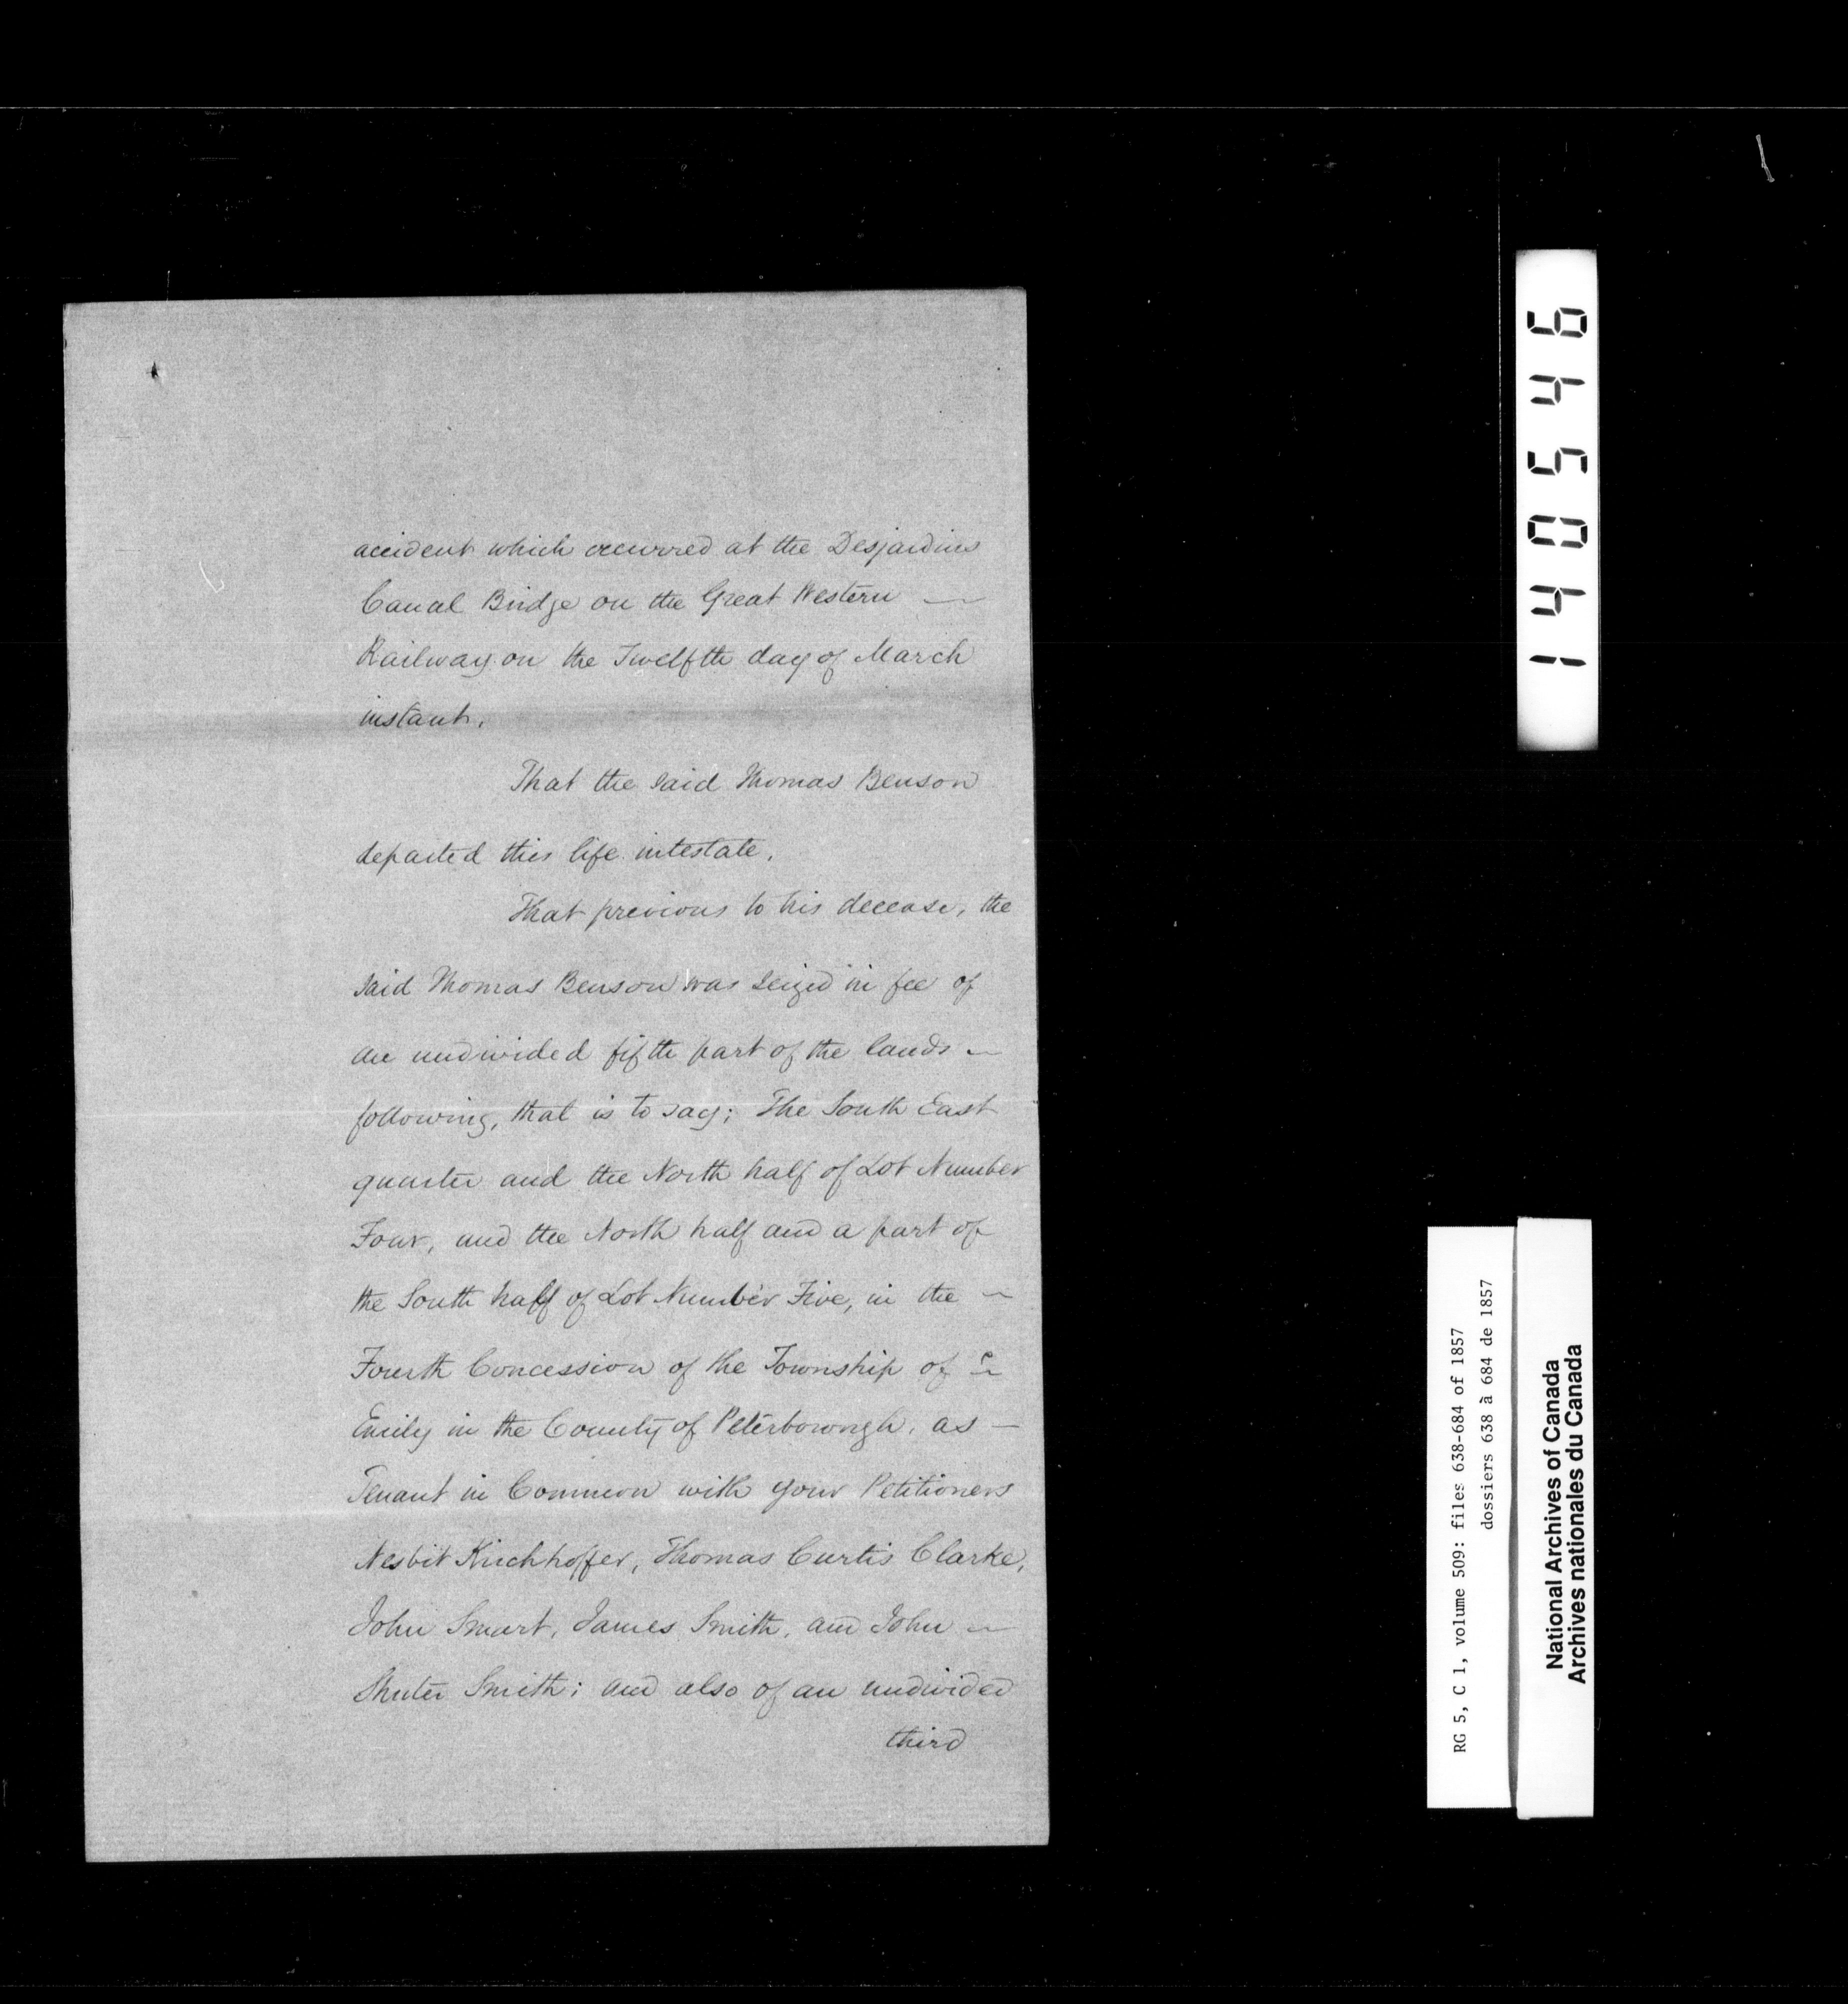 accident which occurred at the Desjardins
Canal Bridge on the Great Western —
Railway on the Twelfth day of March
instant.
That the said Thomas Benson
departed this life intestate.
That previous to his decease, the
said Thomas Benson was seized in fee of
an undivided fifth part of the lands —
following, that is to say; The South East
quarter and the North half of Lot Number
Four, and the North half and a part of
the South half of Lot Number Five, in the —
Fourth Concession of the Township of —
Emily in the County of Peterborough, as —
Tenant in Common with your Petitioners
Nesbit Kirchhoffer, Thomas Curtis Clarke,
John Smart, James Smith, and John —
Shuter Smith; and also of an undivided
third
140546
RG 5, C 1, volume 509: files 638-684 of 1857
dossiers 638 à 684 de 1857
National Archives of Canada
Archives nationales du Canada